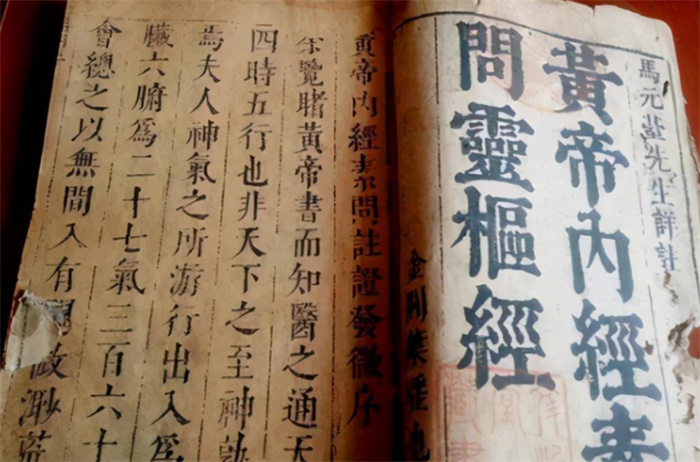 馬元臺先生詳註
黃帝內經素
問靈樞經
黃帝內經素問註證發微序
余覽睹黃帝書而知醫之通天
四時五行也非天下之至神孰
焉夫人神氣之所游行出入為
臟六腑為二十七氣三百六十
會總之以無間入有